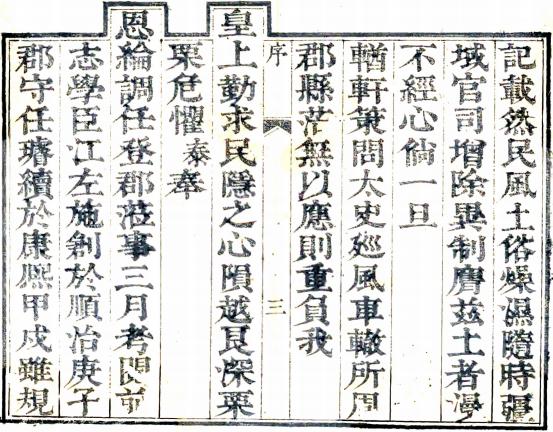 記載然民風土俗燥濕隨時疆
域官司增除異制膺茲土者漫
不經心倘一旦
輶軒策問太史廵風車轍所周
郡縣茫無以應則重負我
序 三
皇上勤求民隱之心隕越良深栗
栗危懼泰奉
恩綸調任登郡蒞事三月考閱前
志學臣江左施創於順治庚子
郡守任璿續於康熙甲戌雖規